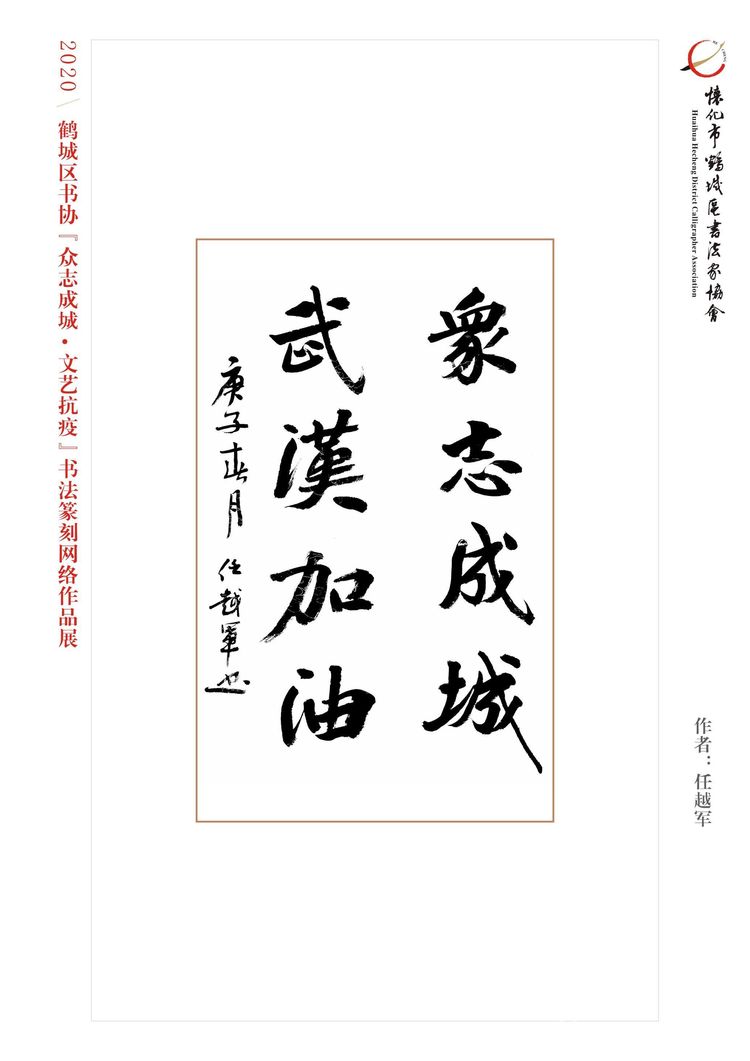 懷化市鶴城區書法家協會
Huaihua Hecheng District Calligrapher Association
作者：任越军
眾志成城
武漢加油
庚子春月 任越軍书
2020 / 鹤城区书协『众志成城·文艺抗疫』书法篆刻网络作品展